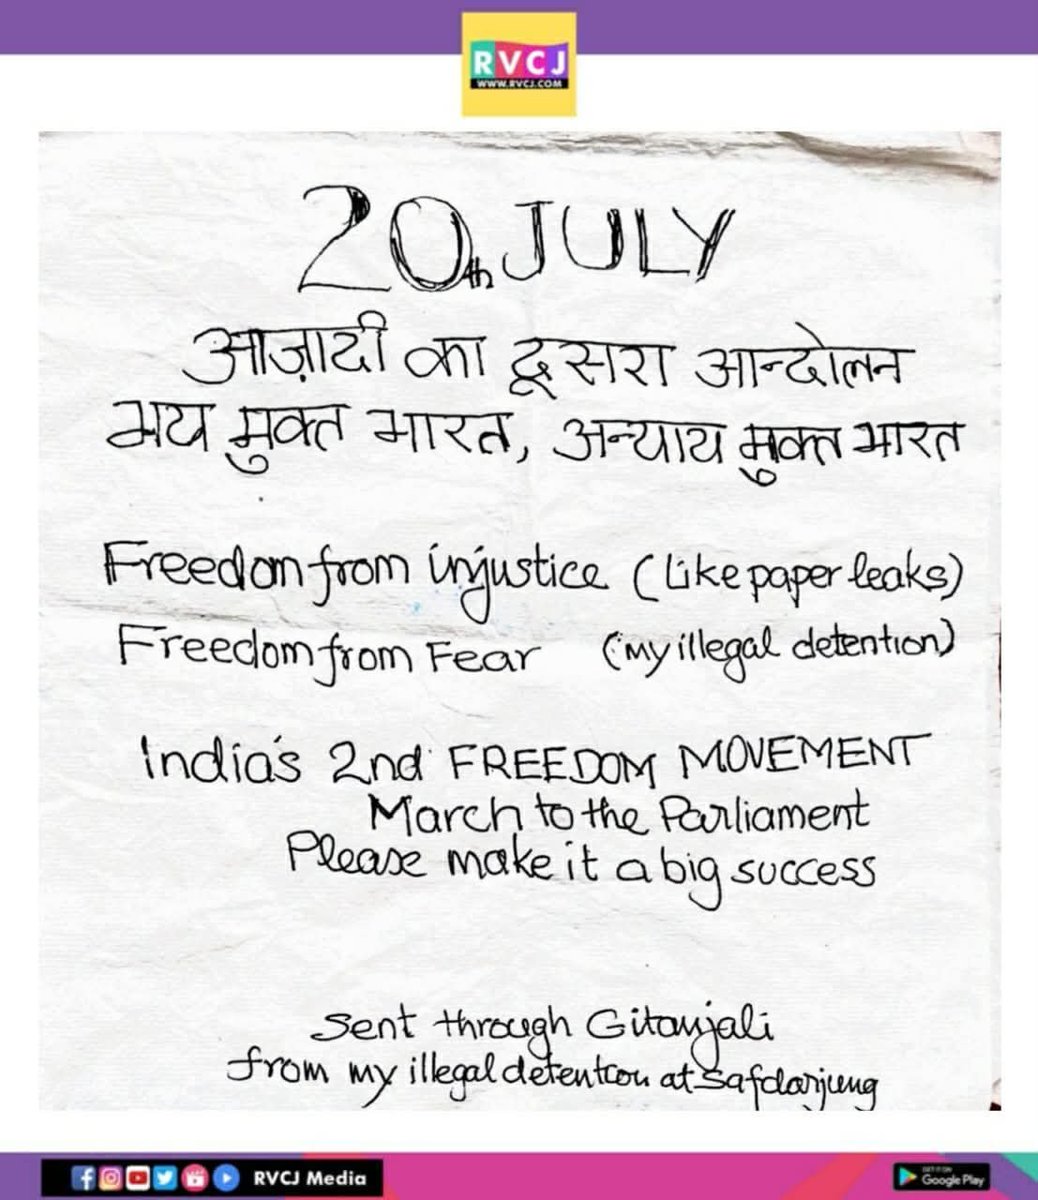 RVCJ
WWW.RVCJ.COM
20th JULY
आज़ादी का दूसरा आन्दोलन
भय मुक्त भारत, अन्याय मुक्त भारत
Freedom from injustice (Like paper leaks)
Freedom from Fear (my illegal detention)
India's 2nd FREEDOM MOVEMENT
March to the Parliament
Please make it a big success
Sent through Gitanjali
from my illegal detention at Safdarjung
RVCJ Media
GET IT ON
Google Play